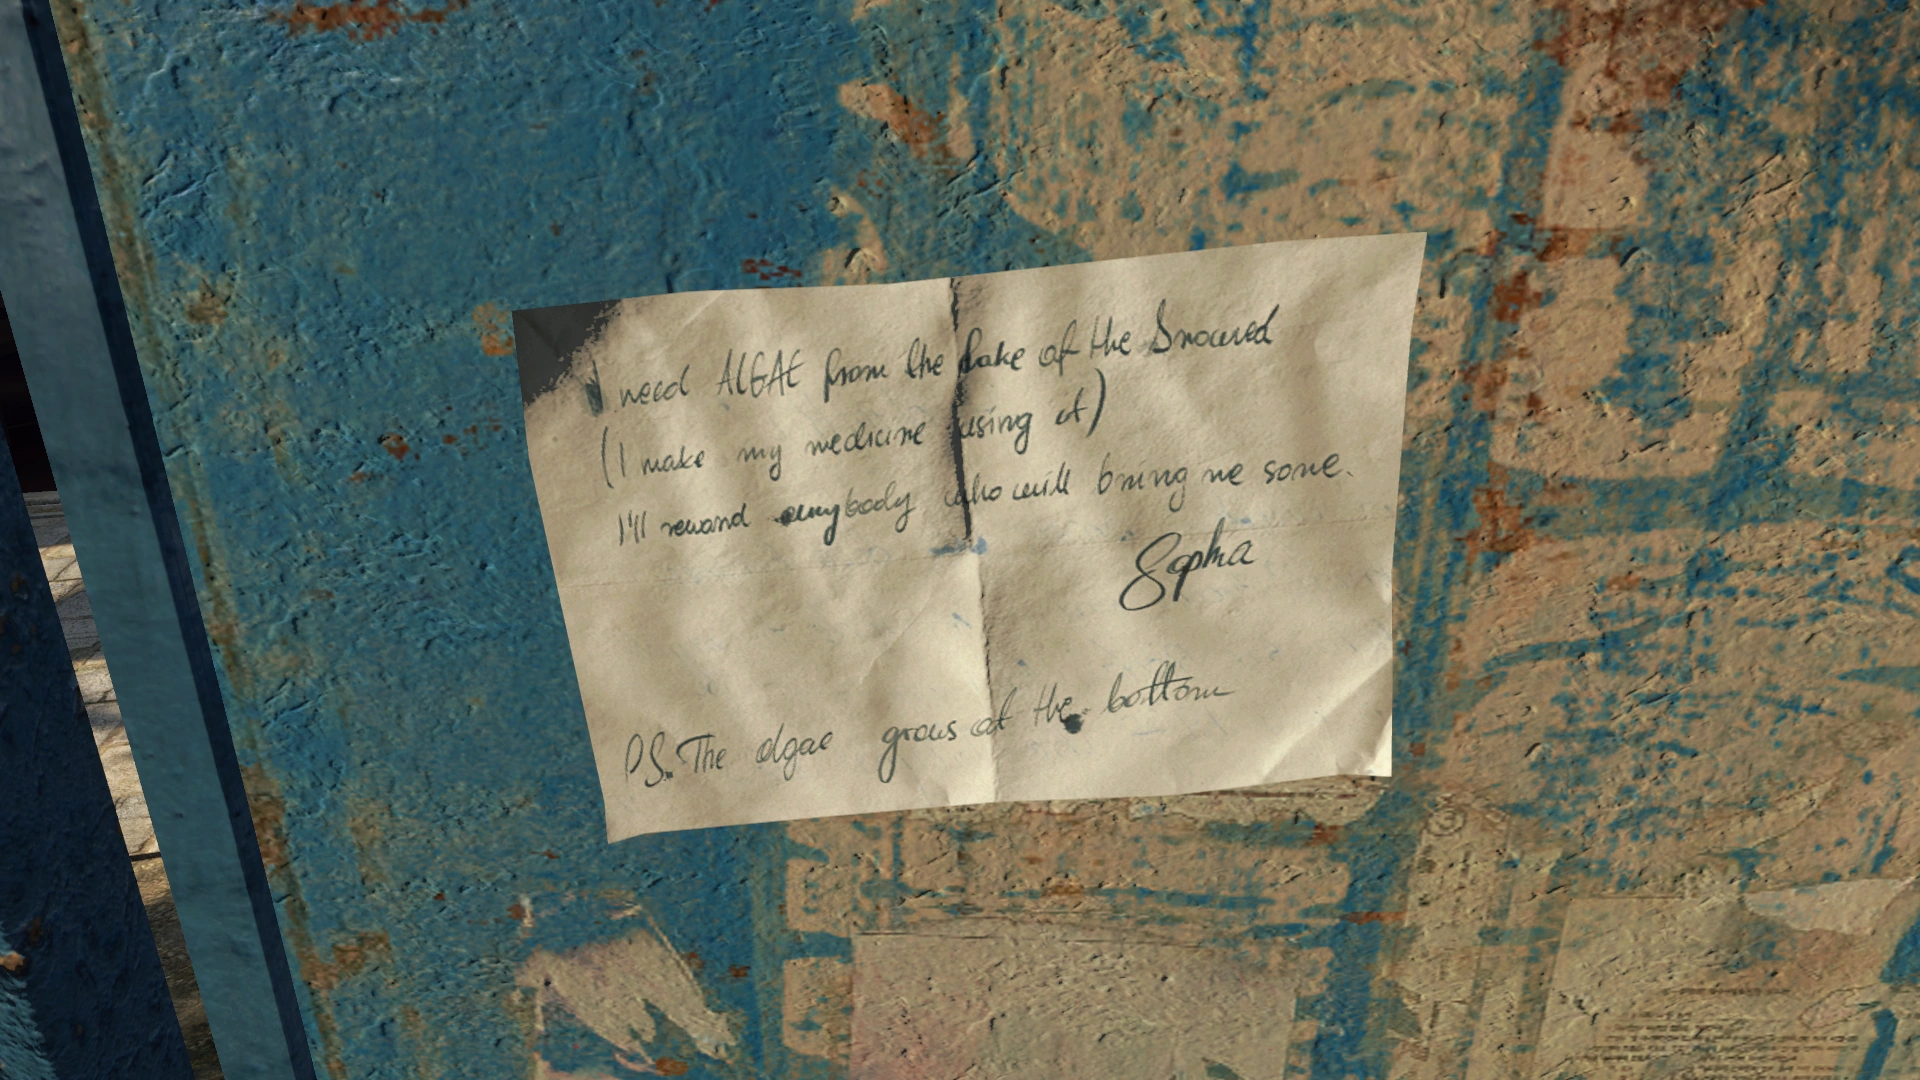 I need ALGAE from the Lake of the Drowned
(I make my medicine using it)
I'll reward anybody who will bring me some.
Sophia
PS. The algae grows at the bottom